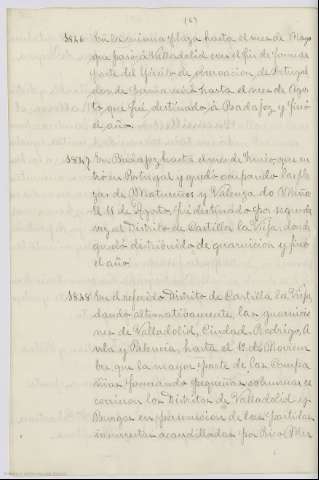 (6)
1846 En la misma plaza hasta el mes de Mayo
que pasó á Valladolid con el fin de formar
parte del Ejército de observacion de Portugal
donde permaneció hasta el mes de Agos-
to que fué destinado á Badajoz y finó
el año.
1847 En Badajoz hasta el mes de Junio que en-
tró en Portugal y quedó ocupando las pla-
zas de Matosinos y Valenza do Miño
El 11 de Agosto fué destinado por segunda
vez al Distrito de Castilla la Vieja donde
quedó distribuido de guarnicion y finó
el año.
1848 En el referido Distrito de Castilla la Vieja
dando alternativamente las guarnicio-
nes de Valladolid, Ciudad Rodrigo, A-
vila y Palencia, hasta el 1º de Noviem-
bre que la mayor parte de las Compa-
ñias formando pequeñas columnas re-
corrieron los Distritos de Valladolid y
Burgos en persecucion de las partidas
insurrectas acaudilladas por Rico, Mu-